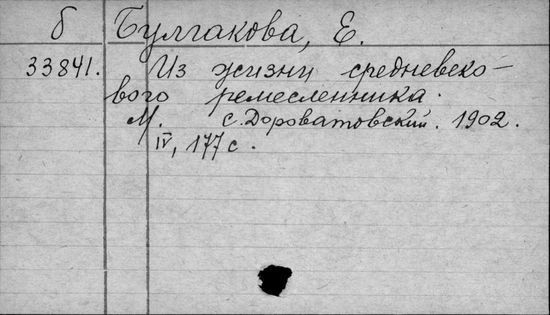 б Булгакова, Е.
33841. Из жизни средневеко-
вого ремесленника.
М. С. Дороватовский. 1902.
IV, 177 с.